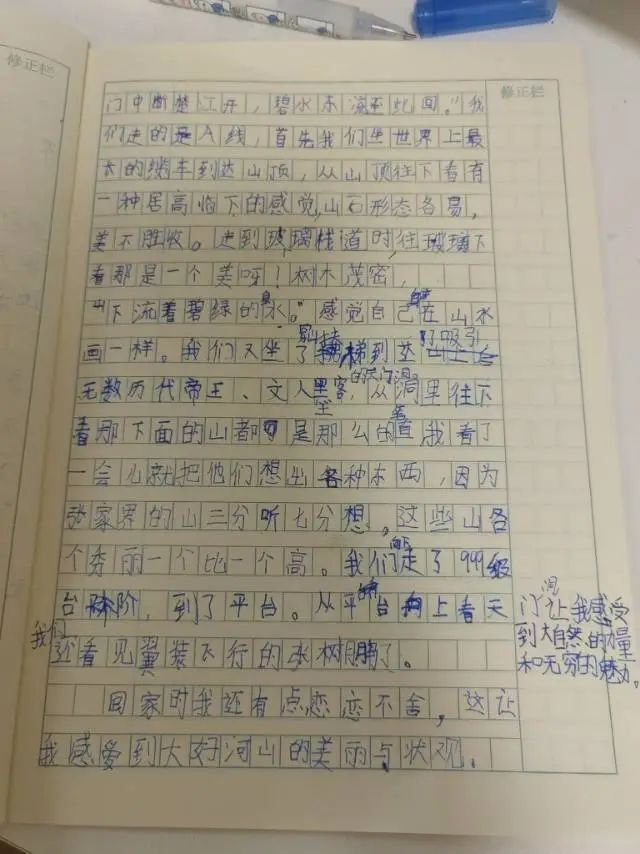 修正栏
修正栏
门中断楚江开，碧水东流至此回。"我
们走的是A线，首先我们坐世界上最
长的缆车到达山顶，从山顶往下看有
一种居高临下的感觉，山石形态各易，
美不胜收。走到玻璃栈道时，往玻璃下
看那是一个美呀！树木茂密，
山下流着碧绿的泉水。"感觉自己在山水
画一样。我们又坐了扶梯到达吸引了
无数历代帝王、文人墨客的天门洞。从洞里往下
看那下面的山都是那么的直，我看了
一会儿就把他们想出各种东西，因为
张家界的山三分听七分想，这些山各
个秀丽一个比一个高。我们走了999级
台阶，到了平台。从平台向上看天
门洞让我感受
到大自然的力量
和无穷的魅力。
我们
还看见翼装飞行的张树鹏了。
回家时我还有点恋恋不舍，这让
我感受到大好河山的美丽与状观。